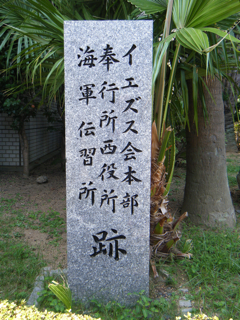 イエズス会本部
奉行所西役所
海軍伝習所
跡